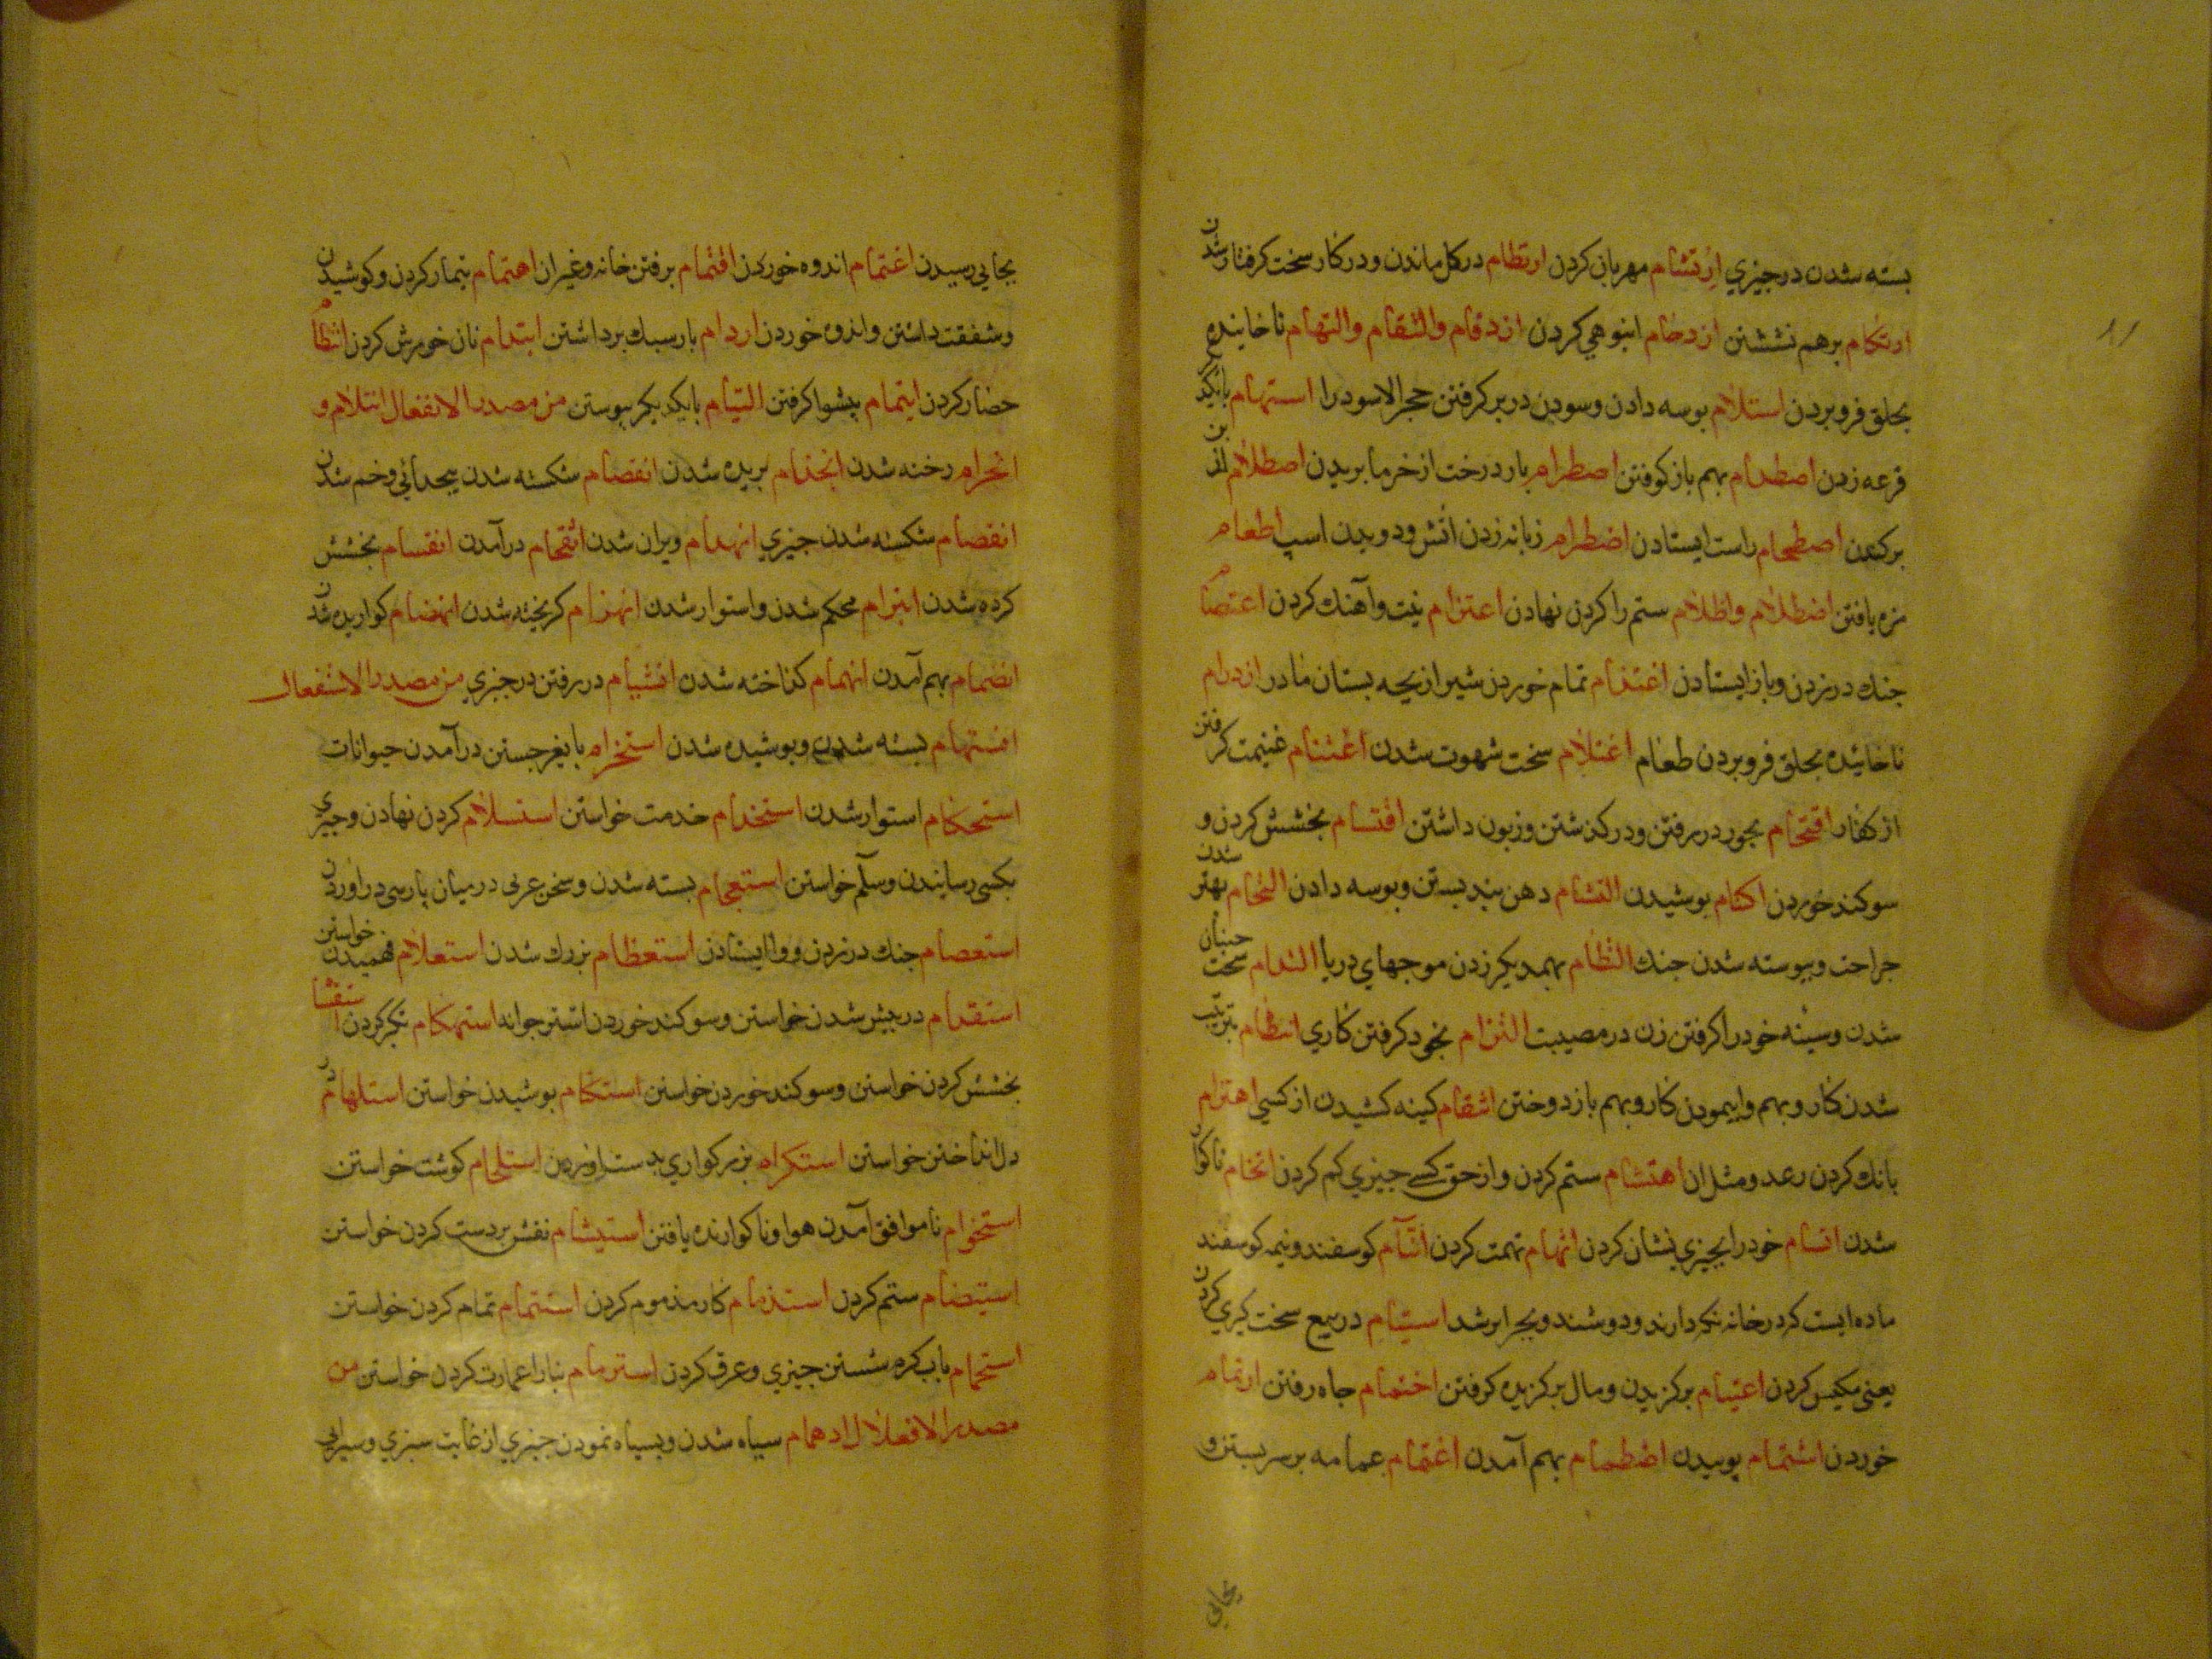 بسته شدن درجیزي ارتشام مهربان کردن ارتطام درکل ماندن ودرکار سخت کرفتار شدن
ارتکام برهم نششتن ازدحام انبوهي کردن ازدقام والتقام والتهام ناخاینده
بحلق فروبردن استلام بوسه دادن وسودن دربرکرفتن حجرالاسود را استهام بایکدیکر
قرعه زدن اصطدام بهم بازکوفتن اصطرام بار درخت ازخرما بریدن اصطلام از بن
برکندن اصطحام راست ایستادن اضطرام زبانه زدن اتش ودویدن اسپ اطعام
مزه یافتن اضطلام واظلام ستم را کردن نهادن اعتزام نیت وآهنك کردن اعتصام
جنك درزدن وبازایستادن اغتذام تمام خوردن شیر ازبچه بستان مادر ازدرام
ناخائیده بحلق فروبردن طعام اغتلام سخت شهوت شدن اغتنام غنیمت کرفتن
ازکفار اقتحام بجور دررفتن ودرکذشتن وزبون داشتن اقتسام بخشش کردن و
سوکند خوردن اکتام بوشیدن التشام دهن بند بستن وبوسه دادن التحام بهتر شدن
جراحت وبیوسته شدن جنك التظام بهمدیکر زدن موجهاي دریا التدام سخت جنبان
شدن وسینه خود را کرفتن زن درمصیبت التزام بخود کرفتن کاري انتظام بترتیب
شدن کار وبهم وابیمودن کار وبهم بازدوختن انتقام کینه کشیدن ازکسي اهتزام
بانك کردن رعد ومثل ان اهتشام ستم کردن وازحق کسے جیزي کم کردن اتخام ناکوار
شدن اتسام خود را بجیزي نشان کردن اتهام تهمت کردن اتیام کوسفند ونیمه کوسفند
ماده ایست کردرخانه نکردارند ودوشند وبجرا برشد استیام دربیع سخت کیري کردن
یعني مکیس کردن اعتیام برکزیدن ومال برکزیده کرفتن اختمام جاه رفتن ارتمام
خوردن اشتمام بوییدن اضطمام بهم آمدن اغتمام عمامه برسربستن و
بجایي
بجایي رسیدن اغتمام اندوه خوردن اقتمام برفتن خانه وغیران اهتمام تیمار کردن وکوشیدن
وشفقت داشتن واندوه خوردن اردام بارسبك برداشتن ایتدام نان خورش کردن انتظام
حضار کردن ایتمام پیشوا کرفتن التیام بایکدیکر پیوستن من مصدر الانفعال انثلام و
انخرام رخنه شدن انجذام بریده شدن انفصام شکسته شدن بیجدائي وخم شدن
انقصام شکسته شدن جیزي انهدام ویران شدن انقحام درآمدن انقسام بخشش
کرده شدن انبرام محکم شدن واستوار شدن انهزام کریخته شدن انهضام کواریده شدن
انضمام بهم آمدن انهمام کداخته شدن انشیام دررفتن درجیزي من مصدر الاستفعال
استبهام بسته شدن وبوشیده شدن استخرام بایغر جستن درآمدن حیوانات
استحکام استوار شدن استخدام خدمت خواستن استسلام کردن نهادن وجیزي
بکسي رسانیدن وسلّم خواستن استعجام بسته شدن وسخن عربی درمیان پارسی دراوردن
استعصام جنك درزدن وواایستادن استعظام بزرك شدن استعلام فهمیدن خواستن
استقدام دربیش شدن خواستن وسوکند خوردن اشتر جوانه استهکام تکبر کردن استقسام
بخشش کردن خواستن وسوکند خوردن خواستن استکام بوشیدن خواستن استلهام در
دل انداختن خواستن استکرام بزرکواري بدست اوردن استلحام کوشت خواستن
استخوام ناموافق آمدن هوا وناکوارنده یافتن استیشام نقش بردست کردن خواستن
استیضام ستم کردن استذمام کار مذموم کردن استتمام تمام کردن خواستن
استحمام باب کرم شستن جیزي وعرق کردن استرمام بنارا عمارت کردن خواستن من
مصدر الافعلال ادهمام سیاه شدن وبسیاه نمودن جیزي ازغایت سبزي وسیرابي